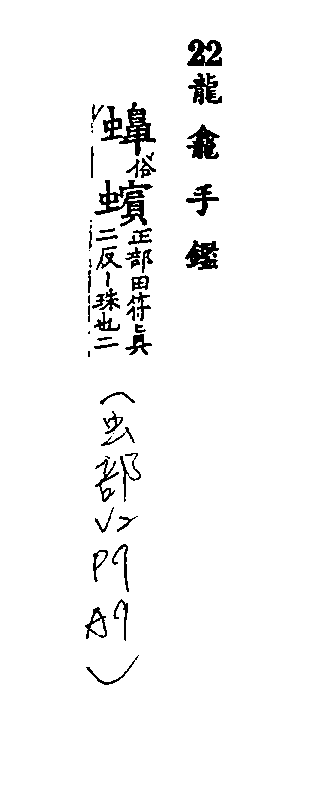 22龍龕手鑑
俗
蠙正部田符真
二反丨珠也二
(虫部V2P9A9)